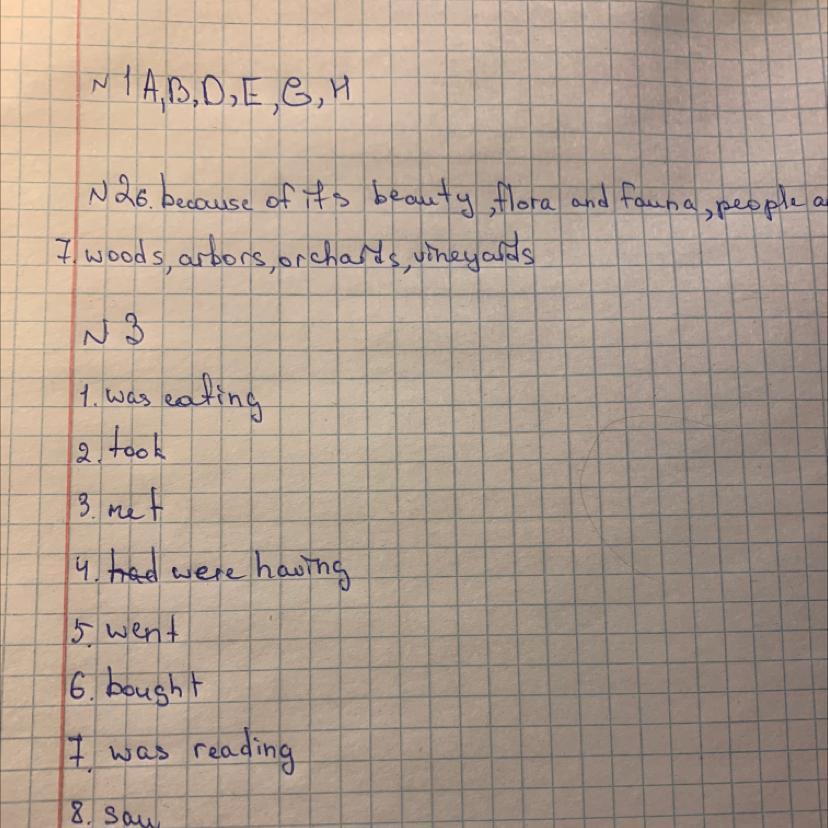 N 1 A, B, D, E, G, H
N 26. because of its beauty, flora and fauna, people a
7. woods, arbors, orchards, vineyards
N 3
1. was eating
2. took
3. met
4. had were having
5. went
6. bought
7. was reading
8. saw